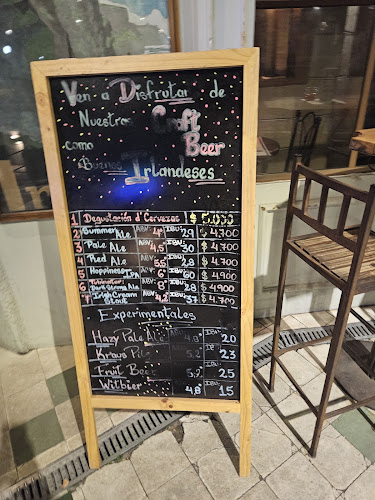 Ven a Disfrutar de
Nuestras Craft
como Beer
Buenos Irlandeses
1 Degustación d' Cervezas $ 5.000
2 Summer Ale ABV: 4° IBU: 29 $ 4.700
3 Pale Ale ABV: 4,5 IBU: 30 $ 4.700
4 Red Ale ABV: 5,5 IBU: 28 $ 4.700
5 Hoppiness IPA ABV: 6° IBU: 60 $ 4900
6 Dark Strong Ale ABV: 8° IBU: 28 $ 4900
7 Irish Cream Stout ABV: 4,2 IBU: 37 $ 4.700
Experimentales
Hazy Pale Ale ABV: 4,8° IBU: 20
Kraus Pils 5,2 IBU: 23
Fruit Beer 5,2 IBU: 25
Witbier 4,8 IBU: 15